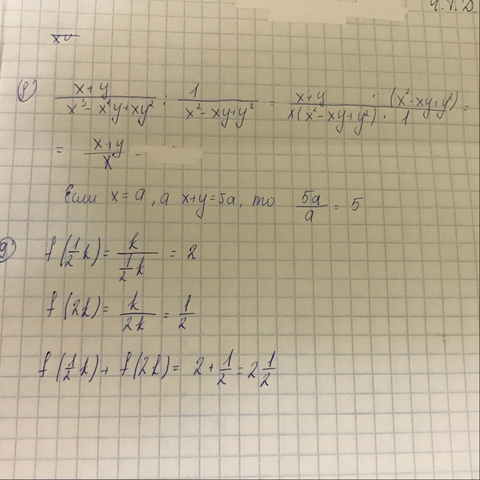 Ч.Т.Д
8) (x+y)/(x³-x²y+xy²) : 1/(x²-xy+y²) = (x+y · (x²-xy+y²))/(x(x²-xy+y²) · 1) =
= (x+y)/x
Если x=a, а x+y=5a, то 5a/a = 5
9) f(1/2 k) = k/(1/2 k) = 2
f(2k) = k/2k = 1/2
f(1/2 k) + f(2k) = 2 + 1/2 = 2 1/2